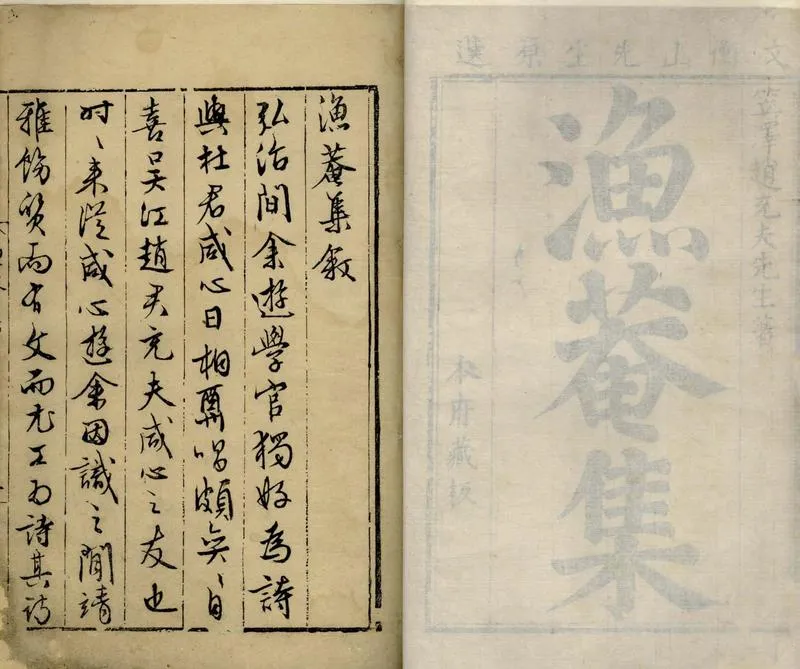 文衡山先生原選
笠澤趙充夫先生著
漁菴集
本府藏板
漁菴集敘
弘治間余遊學官獨好為詩
與杜君咸心日相賡唱頗奕〻自
喜吴江趙君充夫咸心之友也
时〻来從咸心遊余因識之閒靖
雅飭質而有文而尤工为詩其詩